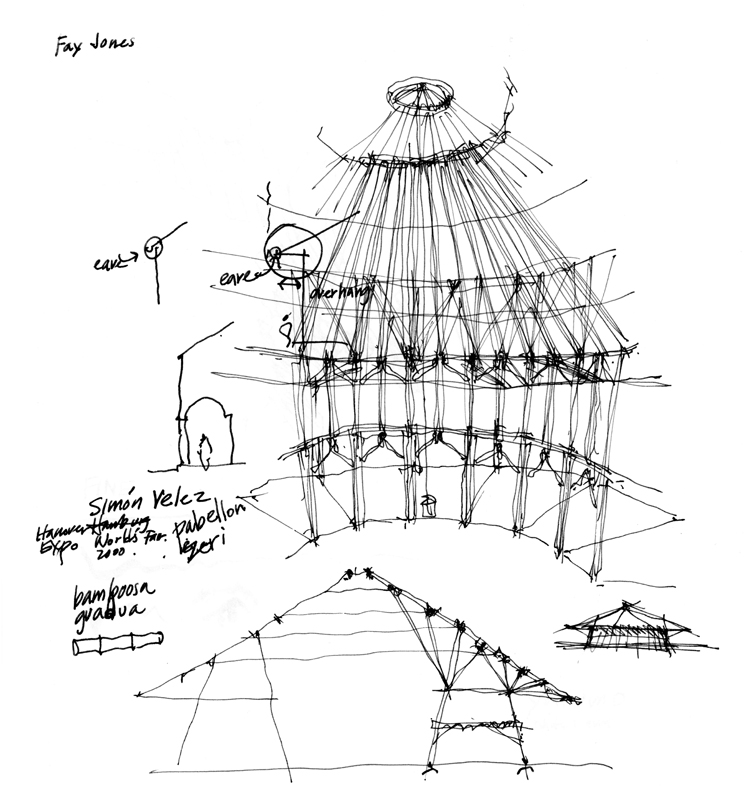 Fay Jones
eave
eave
overhang
Simón Velez
Hanover Hamburg
Expo World's Fair
2000.
pabellon
zeri
bamboosa
guadua